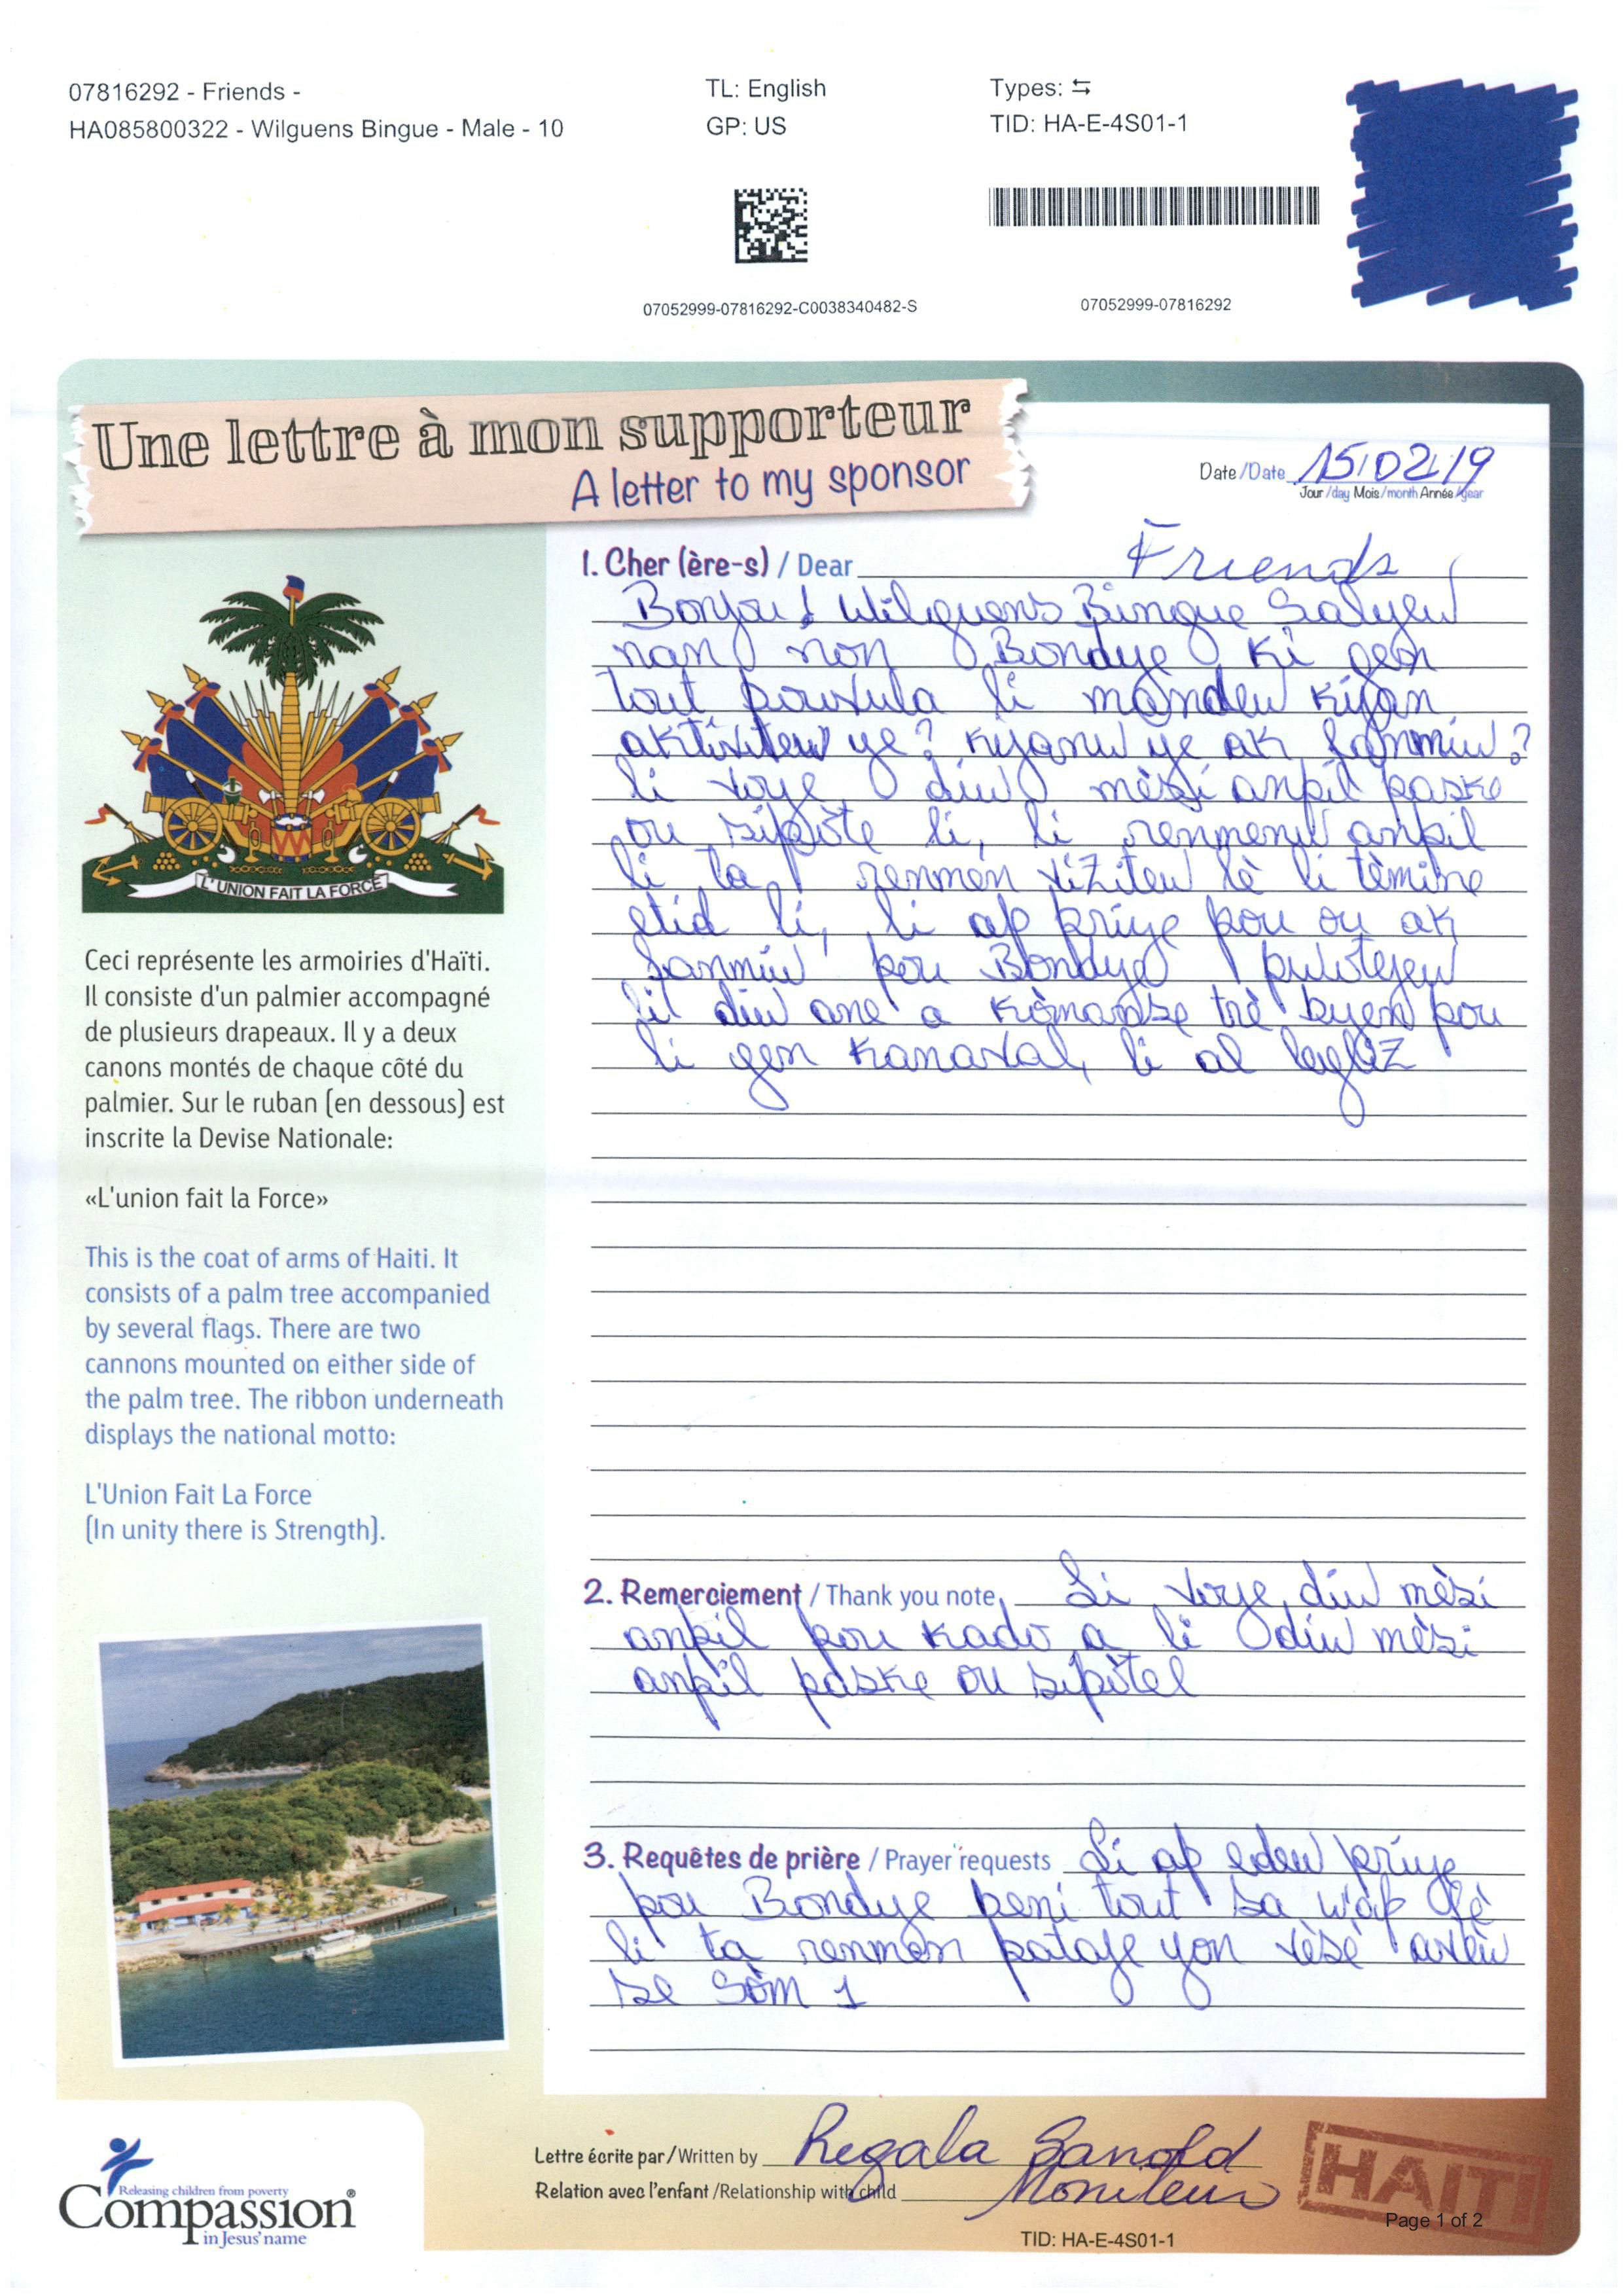 07816292 - Friends -
HA085800322 - Wilguens Bingue - Male - 10
TL: English
GP: US
Types: ⇆
TID: HA-E-4S01-1
07052999-07816292-C0038340482-S
07052999-07816292
Une lettre à mon supporteur
A letter to my sponsor
Date/Date 15/02/19
Jour/day Mois/month Année/year
1. Cher (ère-s) / Dear Friends
Bonjou! Wilguens Bingue Salyew
nan non Bondye ki gen
tout pouvula li mandew kijan
aktivitew ye? kijanw ye ak fanmiw?
li voye diw mèsi anpil paske
ou sipòte li, li renmenw anpil
li ta renmen vizitew lè li tèmine
etid li, li ap priye pou ou ak
fanmiw pou Bondye pwotejew
lil diw ane a kòmanse trè byen pou
li gen kanaval, li al legliz
L'UNION FAIT LA FORCE
Ceci représente les armoiries d'Haïti.
Il consiste d'un palmier accompagné
de plusieurs drapeaux. Il y a deux
canons montés de chaque côté du
palmier. Sur le ruban (en dessous) est
inscrite la Devise Nationale:
«L'union fait la Force»
This is the coat of arms of Haiti. It
consists of a palm tree accompanied
by several flags. There are two
cannons mounted on either side of
the palm tree. The ribbon underneath
displays the national motto:
L'Union Fait La Force
(In unity there is Strength).
2. Remerciement / Thank you note Li voye diw mèsi
anpil pou kado a li diw mèsi
anpil paske ou sipòtel
3. Requêtes de prière / Prayer requests Li ap edew priye
pou Bondye beni tout sa w'ap fè
li ta renmen pataje yon vèsè avèw
se Sòm 1
Lettre écrite par/Written by Regala Sanold
Relation avec l'enfant/Relationship with child Moniteur
HAITI
Page 1 of 2
TID: HA-E-4S01-1
Releasing children from poverty
Compassion®
in Jesus' name